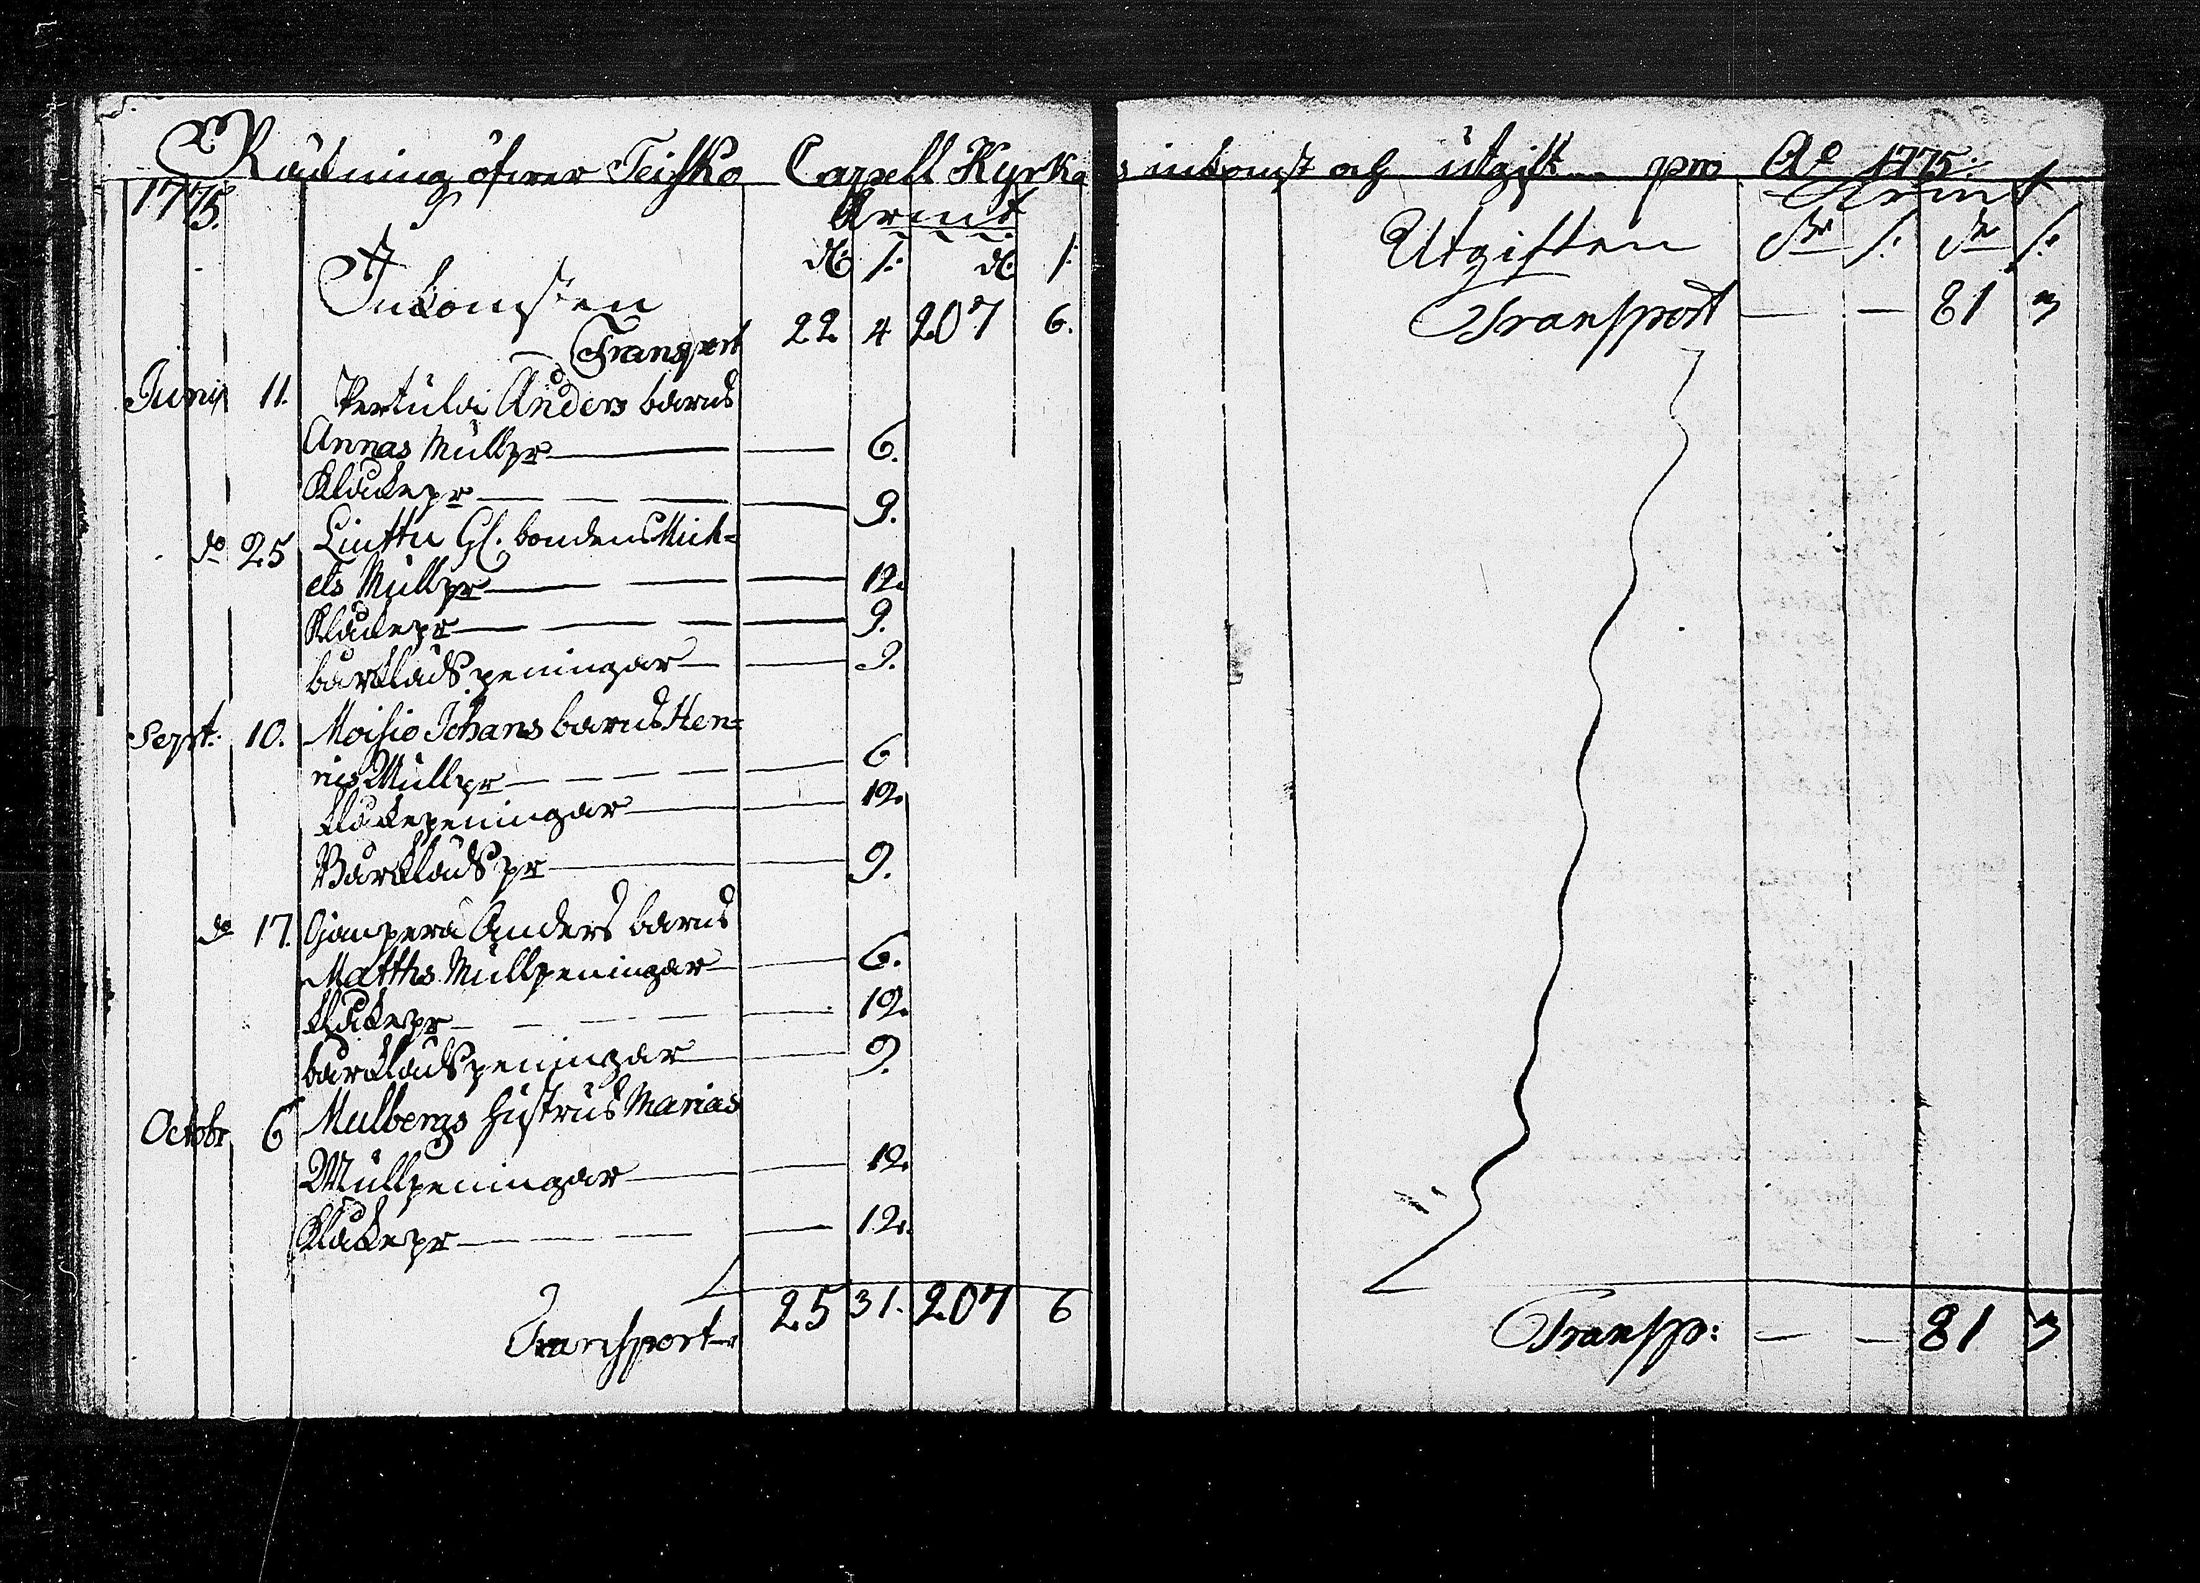 Räckning öfwer Teisko Capell Kyrkas inkomst och utgift pro Ao 1775.
1775.
Krmt
Inkomsten dr: /: dr: /:
Transport 22 4 207 6.
Junij 11. Pertula Anders barns
Annas Mullpr 6.
Klåckepr 9.
do 25 Liuttu Gl. bondens Mich=
els Mullpr 12.
Klåckepr 9.
bårklädspeningar 9.
Sept: 10. Moisio Johans barns Hen=
ris Mullpr 6
klåckepeningar 12.
Bårklädspr 9.
do 17. Ojanperä Anders barns
Matths Mullpeningar 6.
klåckepr 12.
bårklädspeningar 9.
Octobr 6 Mulbergs hustrus Marias
Mullpeningar 12.
Klåckepr 12.
Transport 25 31. 207 6
Krmt
Utgiften dr /: dr /:
Transport — — 81 3
Transp: — — 81 3